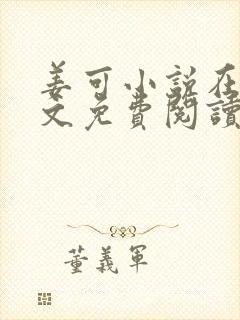 姜可小説在
文免費閱讀
董義軍